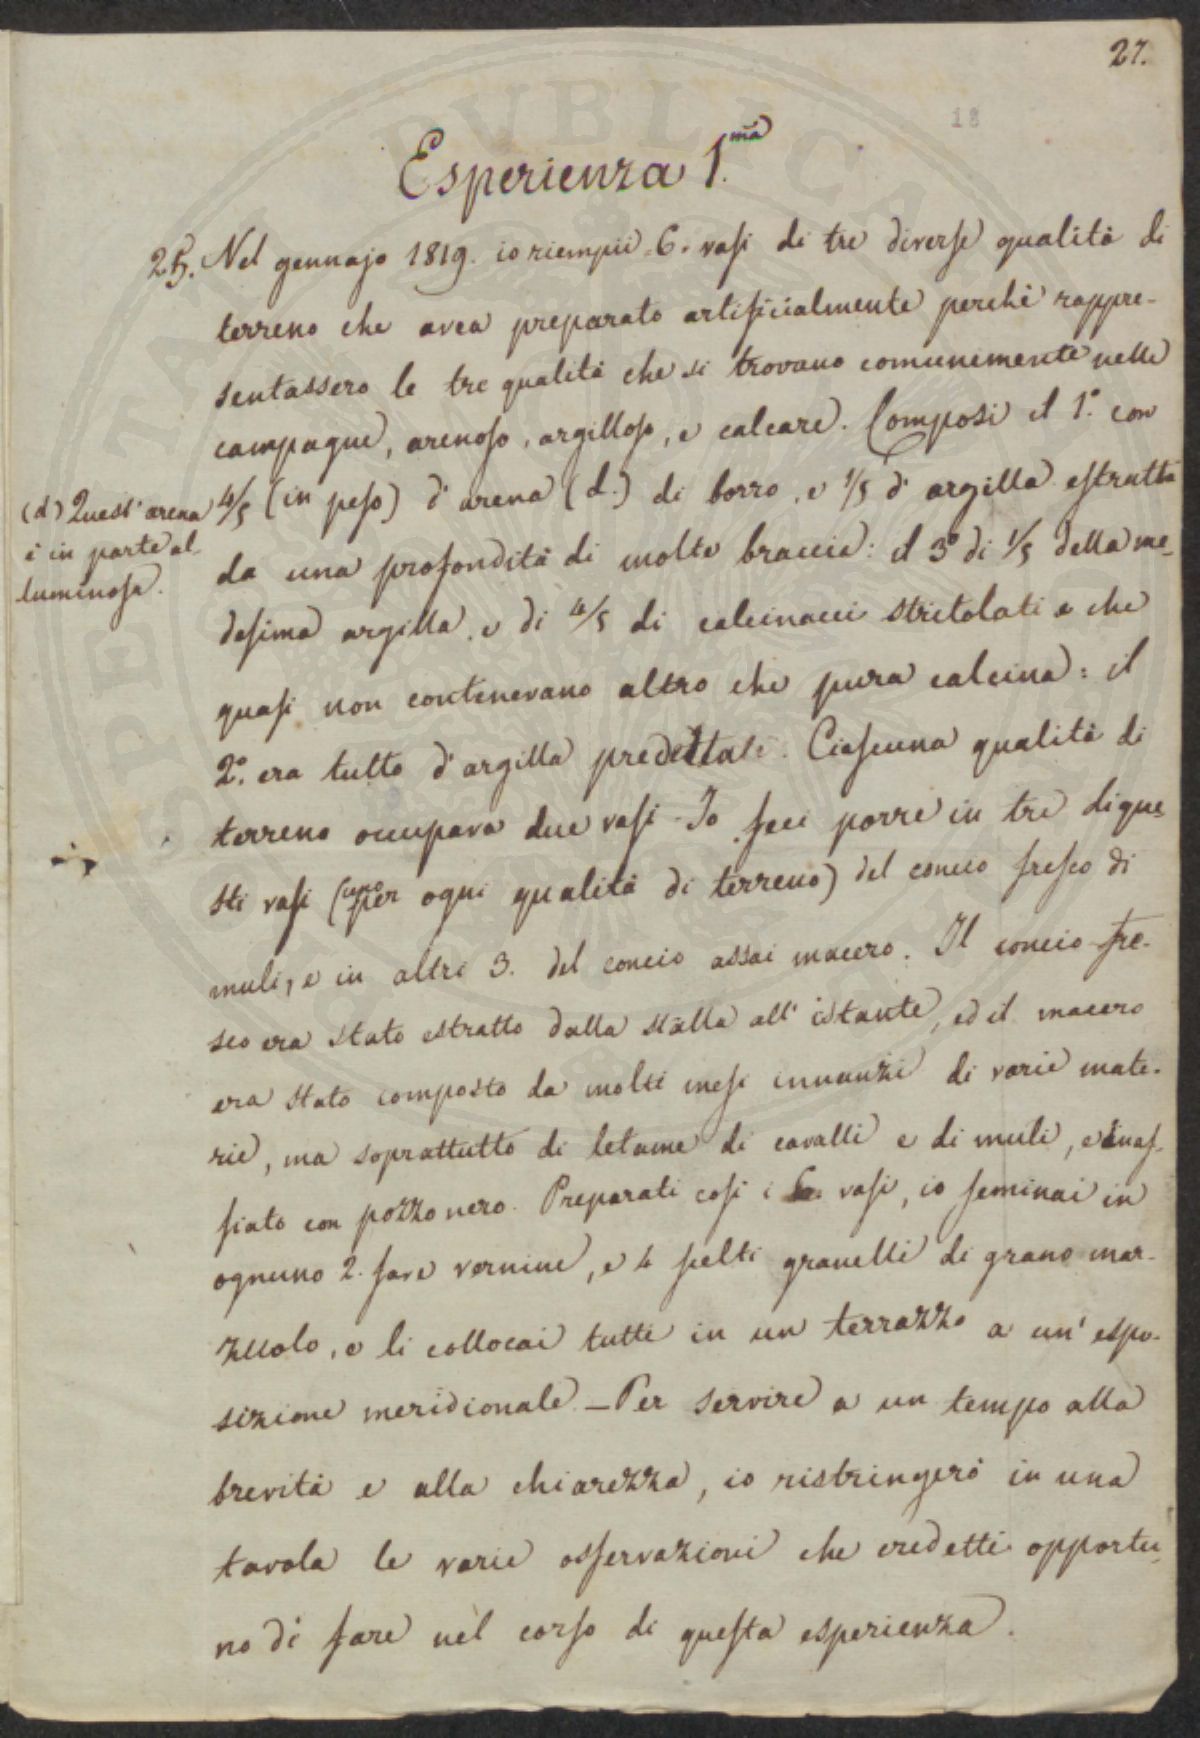 27.
18
Esperienza 1.ma
25. Nel gennajo 1819. io riempii 6. vasi di tre diverse qualità di
terreno che avea preparato artificialmente perchè rappre-
sentassero le tre qualità che si trovano comunemente nelle
campagne, arenoso, argilloso, e calcare. Composi il 1.° con
4/5 (in peso) d'arena (d.) di borro, e 1/5 d'argilla estratta
(d) Quest'arena
è in parte al-
luminosa.
da una profondità di molte braccia: il 3.° di 1/5 della me-
desima argilla, e di 4/5 di calcinacci stritolati e che
quasi non contenevano altro che pura calcina: il
2.° era tutto d'argilla Ciascuna qualità di
terreno occupava due vasi. Io feci porre in tre di que-
sti vasi (uno per ogni qualità di terreno) del concio fresco di
muli, e in altri 3. del concio assai macero. Il concio fre-
sco era stato estratto dalla stalla all'istante, ed il macero
era stato composto da molti mesi innanzi di varie mate-
rie, ma soprattutto di letame di cavalli e di muli, e inaf-
fiato con pozzo nero. Preparati così i 6. vasi, io seminai in
ognuno 2. fave vernine, e 4 scelti granelli di grano mar-
zuolo, e li collocai tutti in un terrazzo a un'espo-
sizione meridionale. – Per servire a un tempo alla
brevità e alla chiarezza, io ristringerò in una
tavola le varie osservazioni che credetti opportu-
no di fare nel corso di questa esperienza.